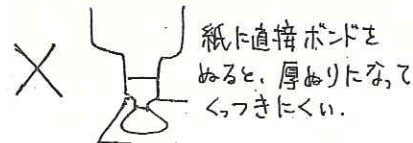 紙に直接ボンドを
ぬると、厚ぬりになって
くっつきにくい.